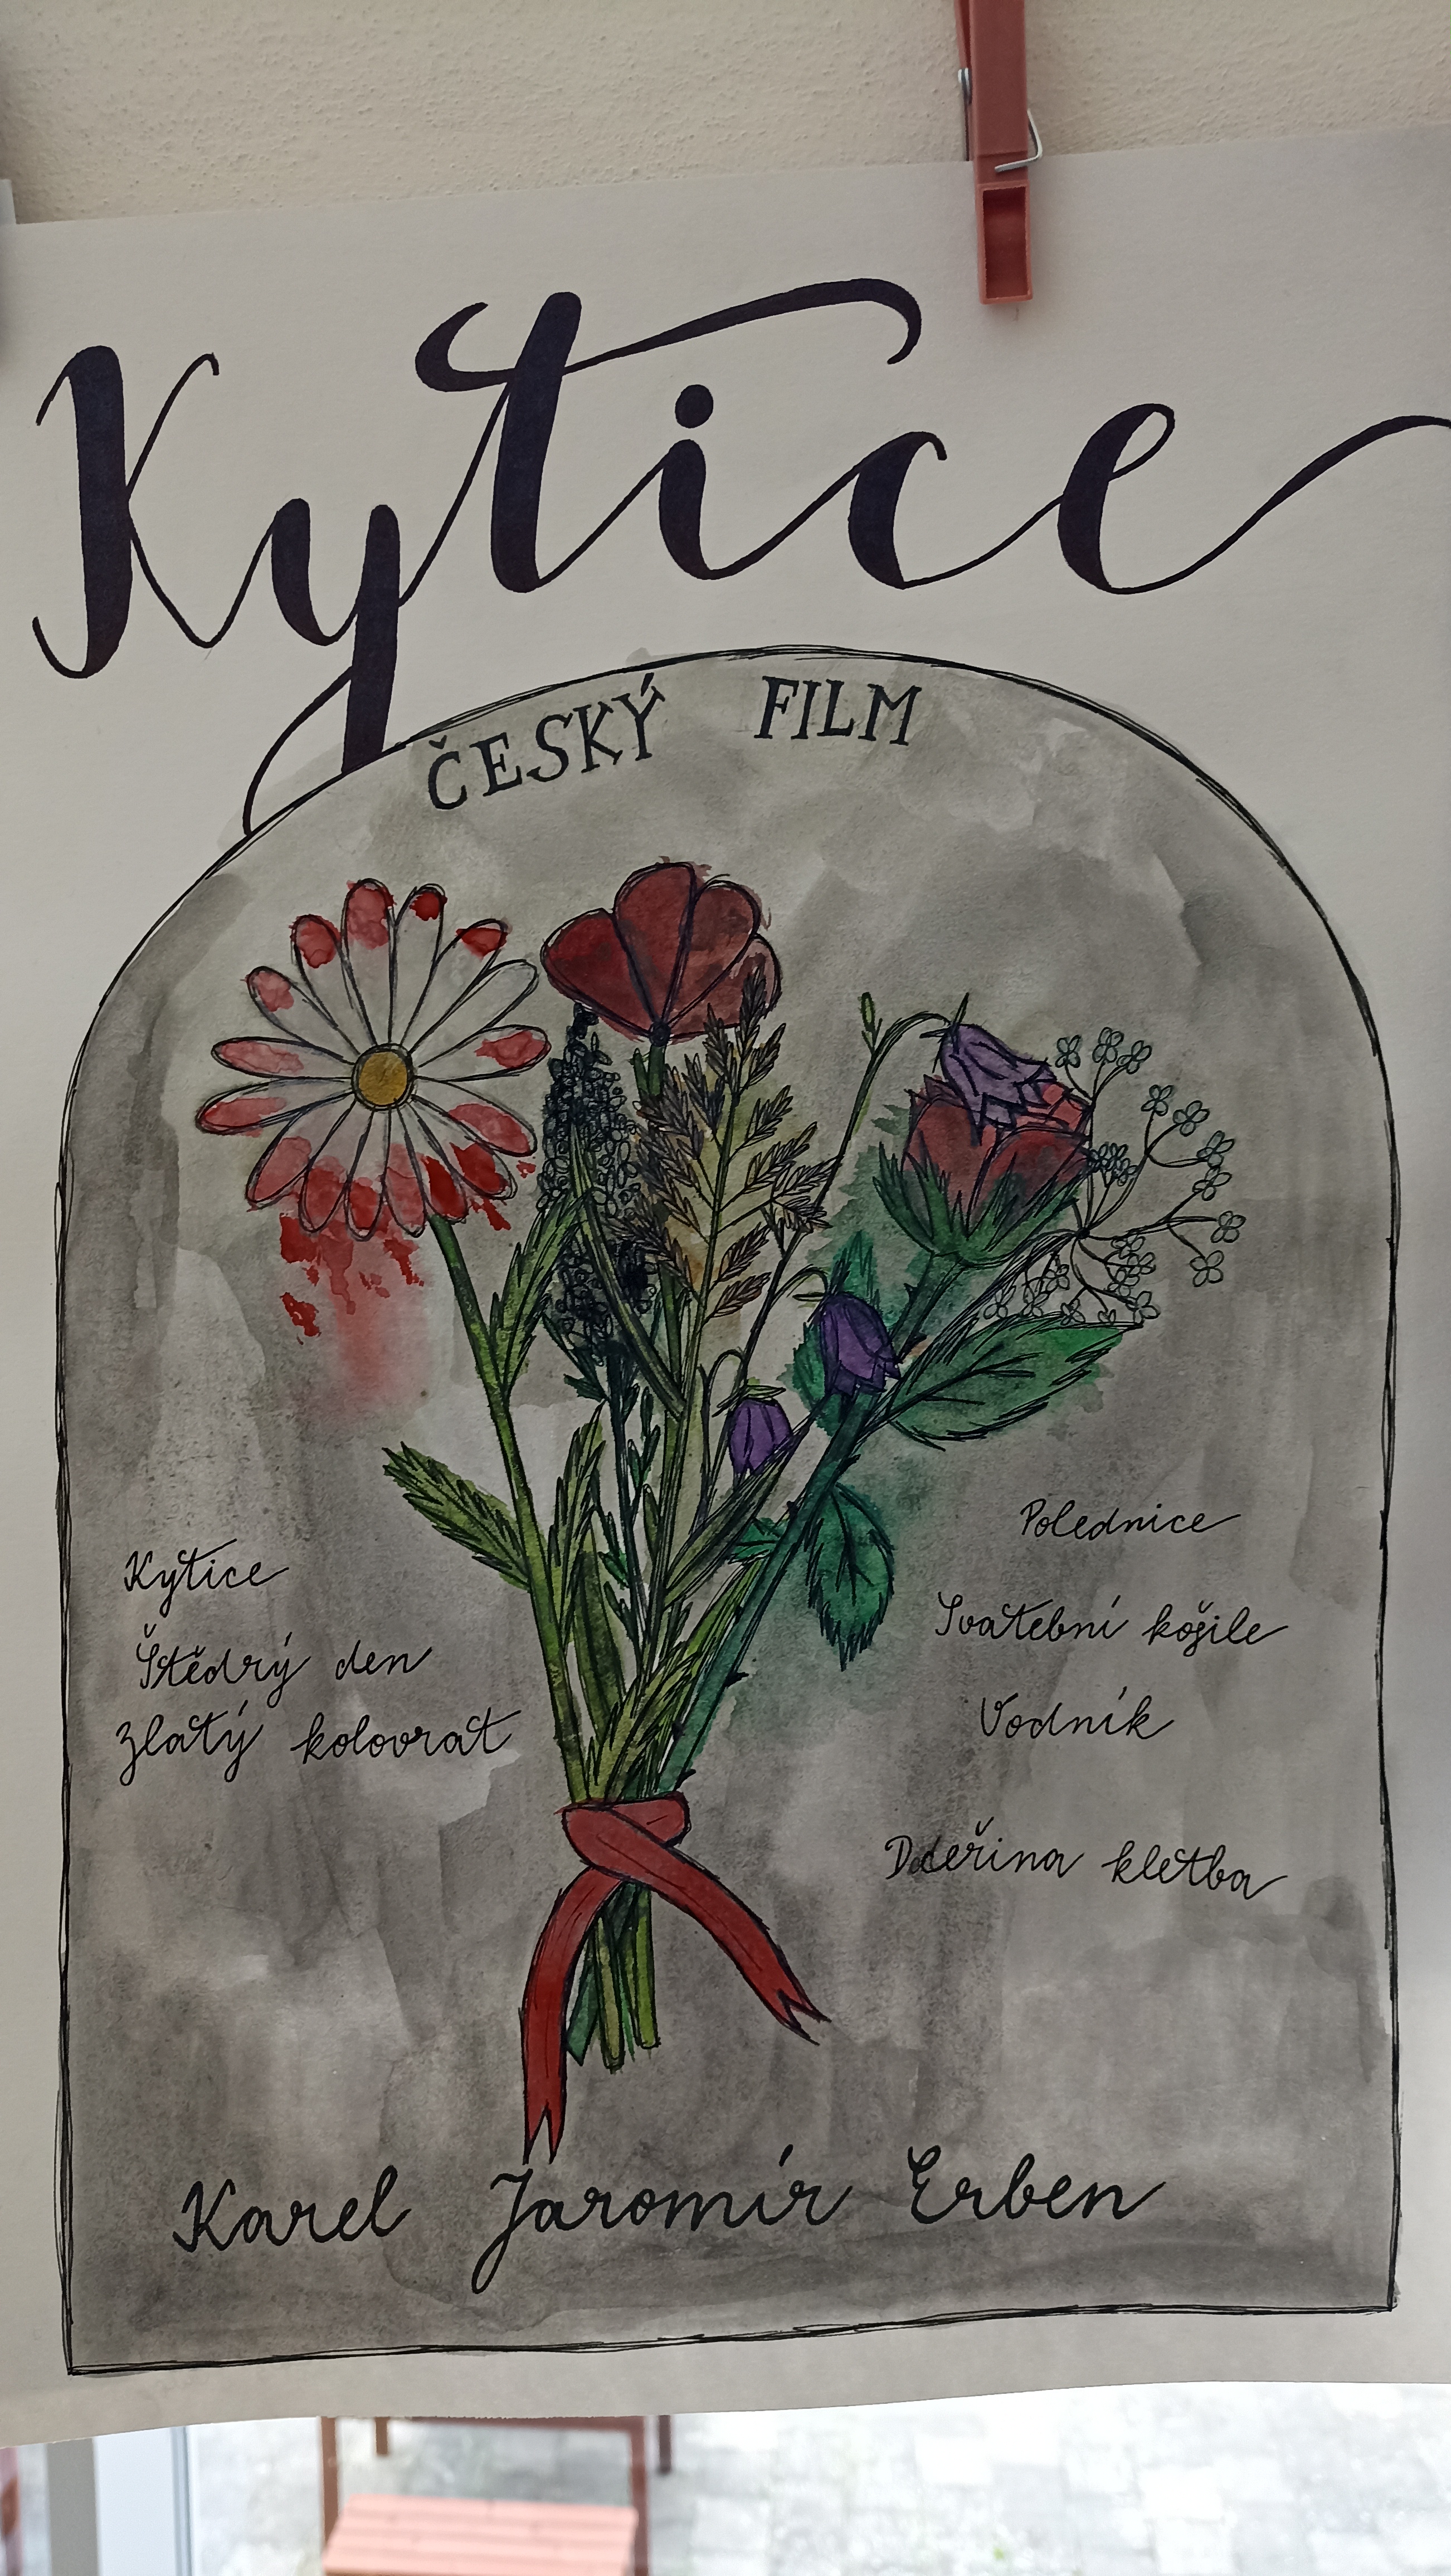 Kytice
ČESKÝ FILM
Kytice
Štědrý den
Zlatý kolovrat
Polednice
Svatební košile
Vodník
Dceřina kletba
Karel Jaromír Erben